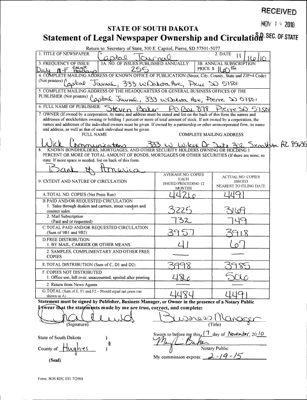 RECEIVED
NOV 1 2010
S.D. SEC. OF STATE
STATE OF SOUTH DAKOTA
Statement of Legal Newspaper Ownership and Circulation
Return to: Secretary of State, 500 E. Capitol, Pierre, SD 57501-5077
1. TITLE OF NEWSPAPER
Capital Journal
2. DATE
11/16/10
3. FREQUENCY OF ISSUE
3A. NO. OF ISSUES PUBLISHED ANNUALLY
255
3B. ANNUAL SUBSCRIPTION
PRICE $
4. COMPLETE MAILING ADDRESS OF KNOWN OFFICE OF PUBLICATION (Street, City, County, State and ZIP+4 Code)
(Not printers)
Capital Journal, 333 W Dakota Ave, Pierre SD 57501
5. COMPLETE MAILING ADDRESS OF THE HEADQUARTERS OR GENERAL BUSINESS OFFICES OF THE
PUBLISHER (Not printers)
Capital Journal, 333 W Dakota Ave, Pierre SD 57501
6. FULL NAME OF PUBLISHER:
Steven Baker PO Box 878 Pierre SD 57501
7. OWNER (If owned by a corporation, its name and address must be stated and also the names and
addresses of stockholders owning or holding 1 percent or more of total amount of stock. If not owned by a corporation, the
names and addresses of the individual owners must be given. If owned by a partnership or other unincorporated firm, its name
and address, as well as that of each individual must be given.
FULL NAME
COMPLETE MAILING ADDRESS
Wick Communications
8. KNOWN BONDHOLDERS, MORTGAGES, AND OTHER SECURITY HOLDERS OWNING OR HOLDING 1
PERCENT OR MORE OF TOTAL AMOUNT OF BONDS, MORTGAGES, OR OTHER SECURITIES (If there are none, so
state. If more space is needed, list on back of this form.
Bank of America
9. EXTENT AND NATURE OF CIRCULATION
AVERAGE NO. COPIES
EACH
ISSUED PRECEDING 12
MONTHS
ACTUAL NO. COPIES
ISSUED
NEAREST TO FILING DATE
A. TOTAL NO. COPIES (Net Press Run)
4491
B. PAID AND/OR REQUESTED CIRCULATION
1. Sales through dealers and carriers, street vendors and
counter sales
3225
3169
2. Mail Subscription
(Paid and or requested)
732
749
C. TOTAL PAID AND/OR REQUESTED CIRCULATION
(Sum of 9B1 and 9B2)
3957
3918
D. FREE DISTRIBUTION:
BY MAIL, CARRIER OR OTHER MEANS
41
67
2. SAMPLES, COMPLIMENTARY AND OTHER FREE
COPIES
E. TOTAL DISTRIBUTION (Sum of C, D1 and D2)
3998
3985
F. COPIES NOT DISTRIBUTED
1. Office use, left over, unaccounted, spoiled after printing
486
506
2. Return from News Agents
G. TOTAL (Sum of E, F1 and F2 - Should equal net press run
shown in A)
4484
4491
Statement must be signed by Publisher, Business Manager, or Owner in the presence of a Notary Public
I swear that the statements made by me are true, correct, and complete:
Business Manager
(Signature)
(Title)
State of South Dakota )
County of Hughes )
Sworn to before me this 17 day of November 2010
Notary Public
My commission expires 2-19-15